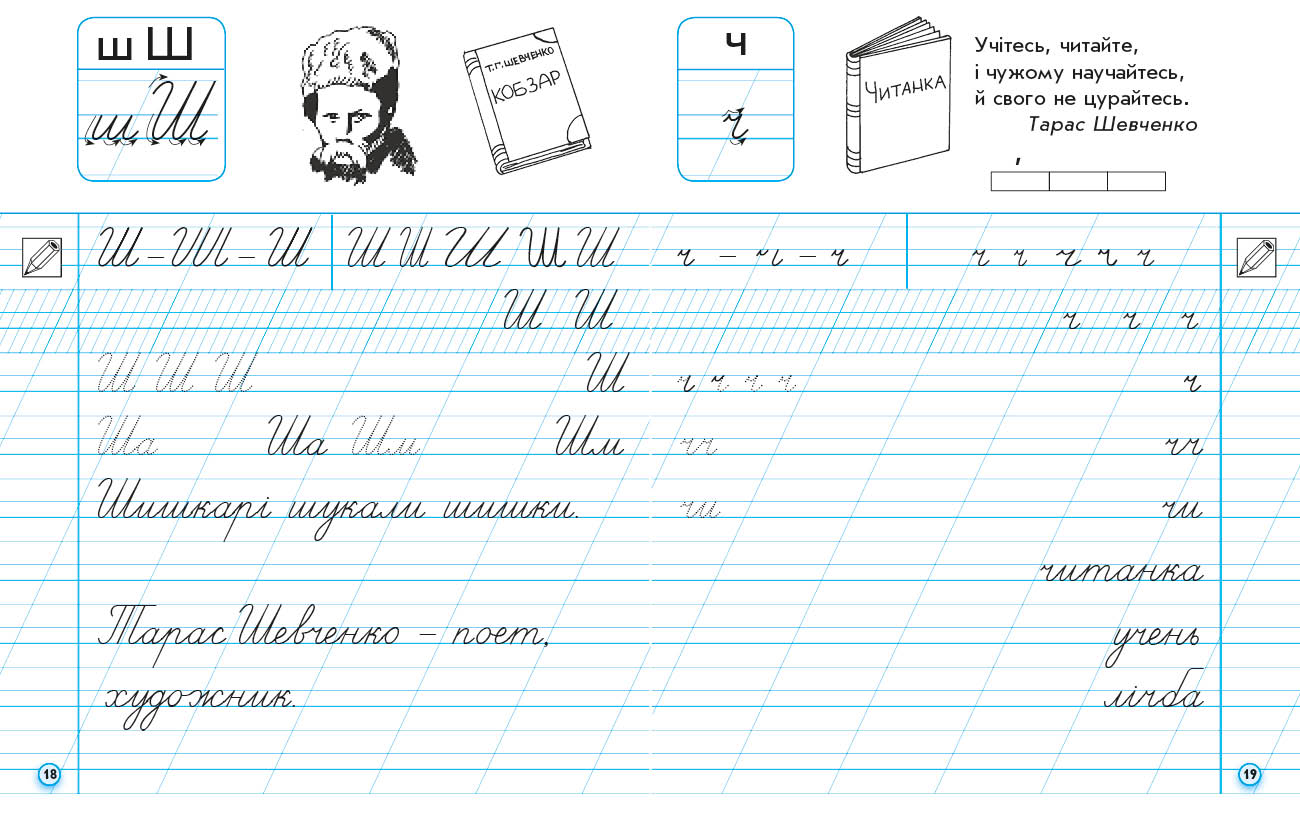 ш Ш
ш Ш
Т.Г. ШЕВЧЕНКО
КОБЗАР
Ш – Ш – Ш Ш Ш Ш Ш Ш
Ш Ш
Ш Ш Ш Ш
Ша Ша Шм Шм
Шишкарі шукали шишки.
Тарас Шевченко – поет,
художник.
18
ч
ч
ЧИТАНКА
Учітесь, читайте,
і чужому научайтесь,
й свого не цурайтесь.
Тарас Шевченко
ч – ч – ч ч ч ч ч ч
ч ч ч
ч ч ч ч ч
чч чч
чи чи
читанка
учень
лічба
19